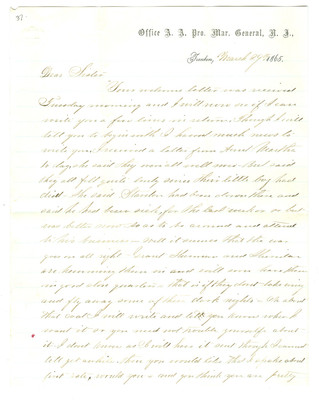 Office A. A. Pro. Mar. General, N. J.,
Trenton, March 29th 1865.
Dear Sister
Your welcome letter was received
Tuesday morning and I will now see if I can
write you a few lines in return though I will
tell you to begin with I havent much news to
write you. I received a letter from Aunt
to day she said they were all well now. And said
they all felt quite lonely since their little boy had
died. She said had been down there and
said he had been sick for the last week or so but
was better now so as to be around and attend
to his business - Well it seems that the war
goes on all right Grant Sherman and Sheridan
are hemming them in and will soon have them
in good close quarters - that is if they dont take wing
and fly away some of these dark nights -
that coat I will write and tell you know when I
want it so you need not trouble yourself about
it. I dont know as I will have it and though I cannot
tell yet
first rate, would you - and you think you are pretty